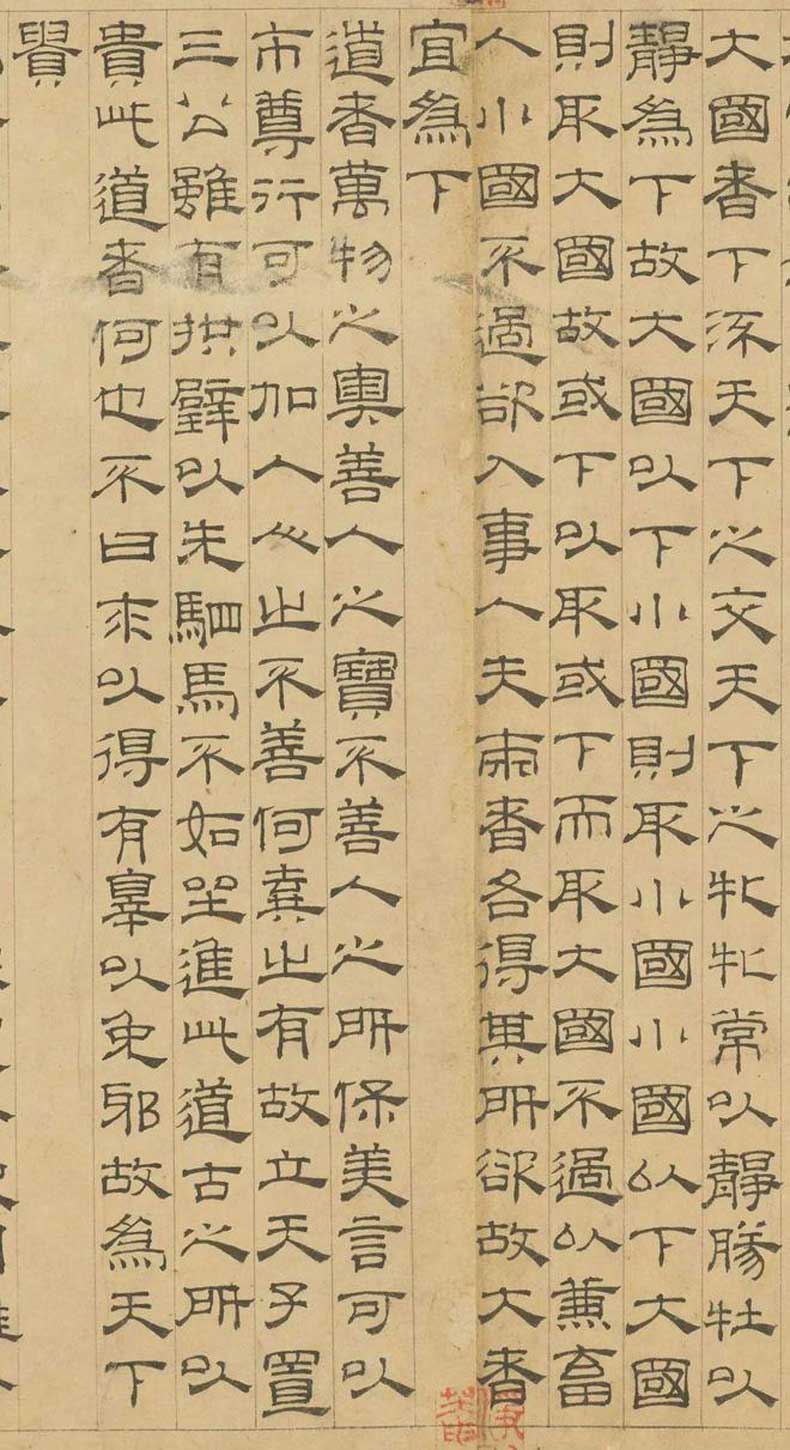 大國者下流天下之交天下之牝牝常以靜勝牡以
靜為下故大國以下小國則取小國小國以下大國
則取大國故或下以取或下而取大國不過以兼畜
人小國不過欲入事人夫兩者各得其所欲故大者
宜為下
道者萬物之奧善人之寶不善人之所保美言可以
市尊行可以加人人之不善何棄之有故立天子置
三公雖有拱璧以先駟馬不如坐進此道古之所以
貴此道者何也不曰求以得有辠以免邪故為天下
貴